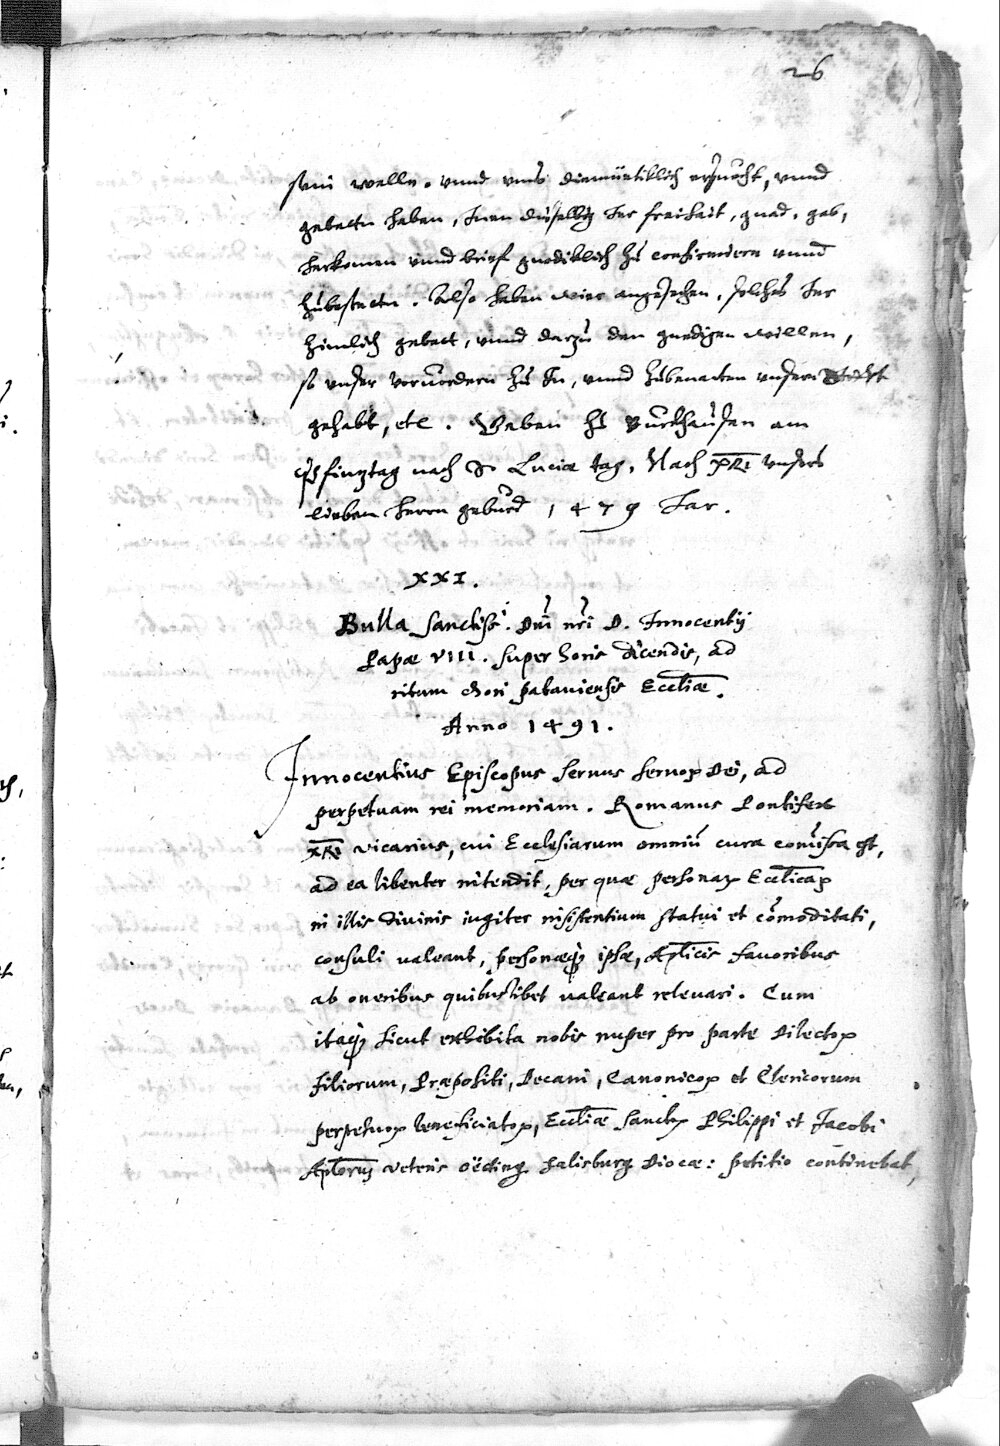 26
sein welle. vnnd vnns diemüetiklich ersuecht, vnnd
gebettn haben, Inen dieselbig Jer freihait, gnad, gab,
herkomen vnnd brief gnediklich zu confirmirn vnnd
zubestettn. Also haben wier angesechen, solches Jer
zimlich gebett, vnnd darzu den gnedigen willen,
so vnser vorvordern zu In, vnnd zubenanten vnserm
gehabt, etc. Geben zu Burckhausen am
Pfinztag nach S. Luciæ tag. Nach XRI vnsers
lieben Herrn geburd 1479 Jar.
XXI.
Bulla Sanctiss. Dni nri D. Innocentij
Papæ VIII. super horis dicendis, ad
ritum chori pataviensis Eccliæ.
Anno 1491.
Innocentius Episcopus servus servoꝝ Dei, ad
perpetuam rei memoriam. Romanus Pontifex
XRI vicarius, cui Ecclesiarum omniū cura comissa est,
ad ea libenter intendit, per quæ personaꝝ Eccliticaꝝ
in illis divinis iugiter insistentium statui et comoditati,
consuli valeant, personæqꝫ ipsæ, Aplicis favoribus
ab oneribus quibuslibet valeant relevari. Cum
itaqꝫ sicut exhibita nobis nuper pro parte Dilectoꝝ
filiorum, Præpositi, Decani, Canonicoꝝ et Clericorum
perpetuoꝝ beneficiatoꝝ, Eccliæ Sanctoꝝ Philippi et Jacobi
Aplorum veteris oëting Salisburg Diocæ: petitio continebat,